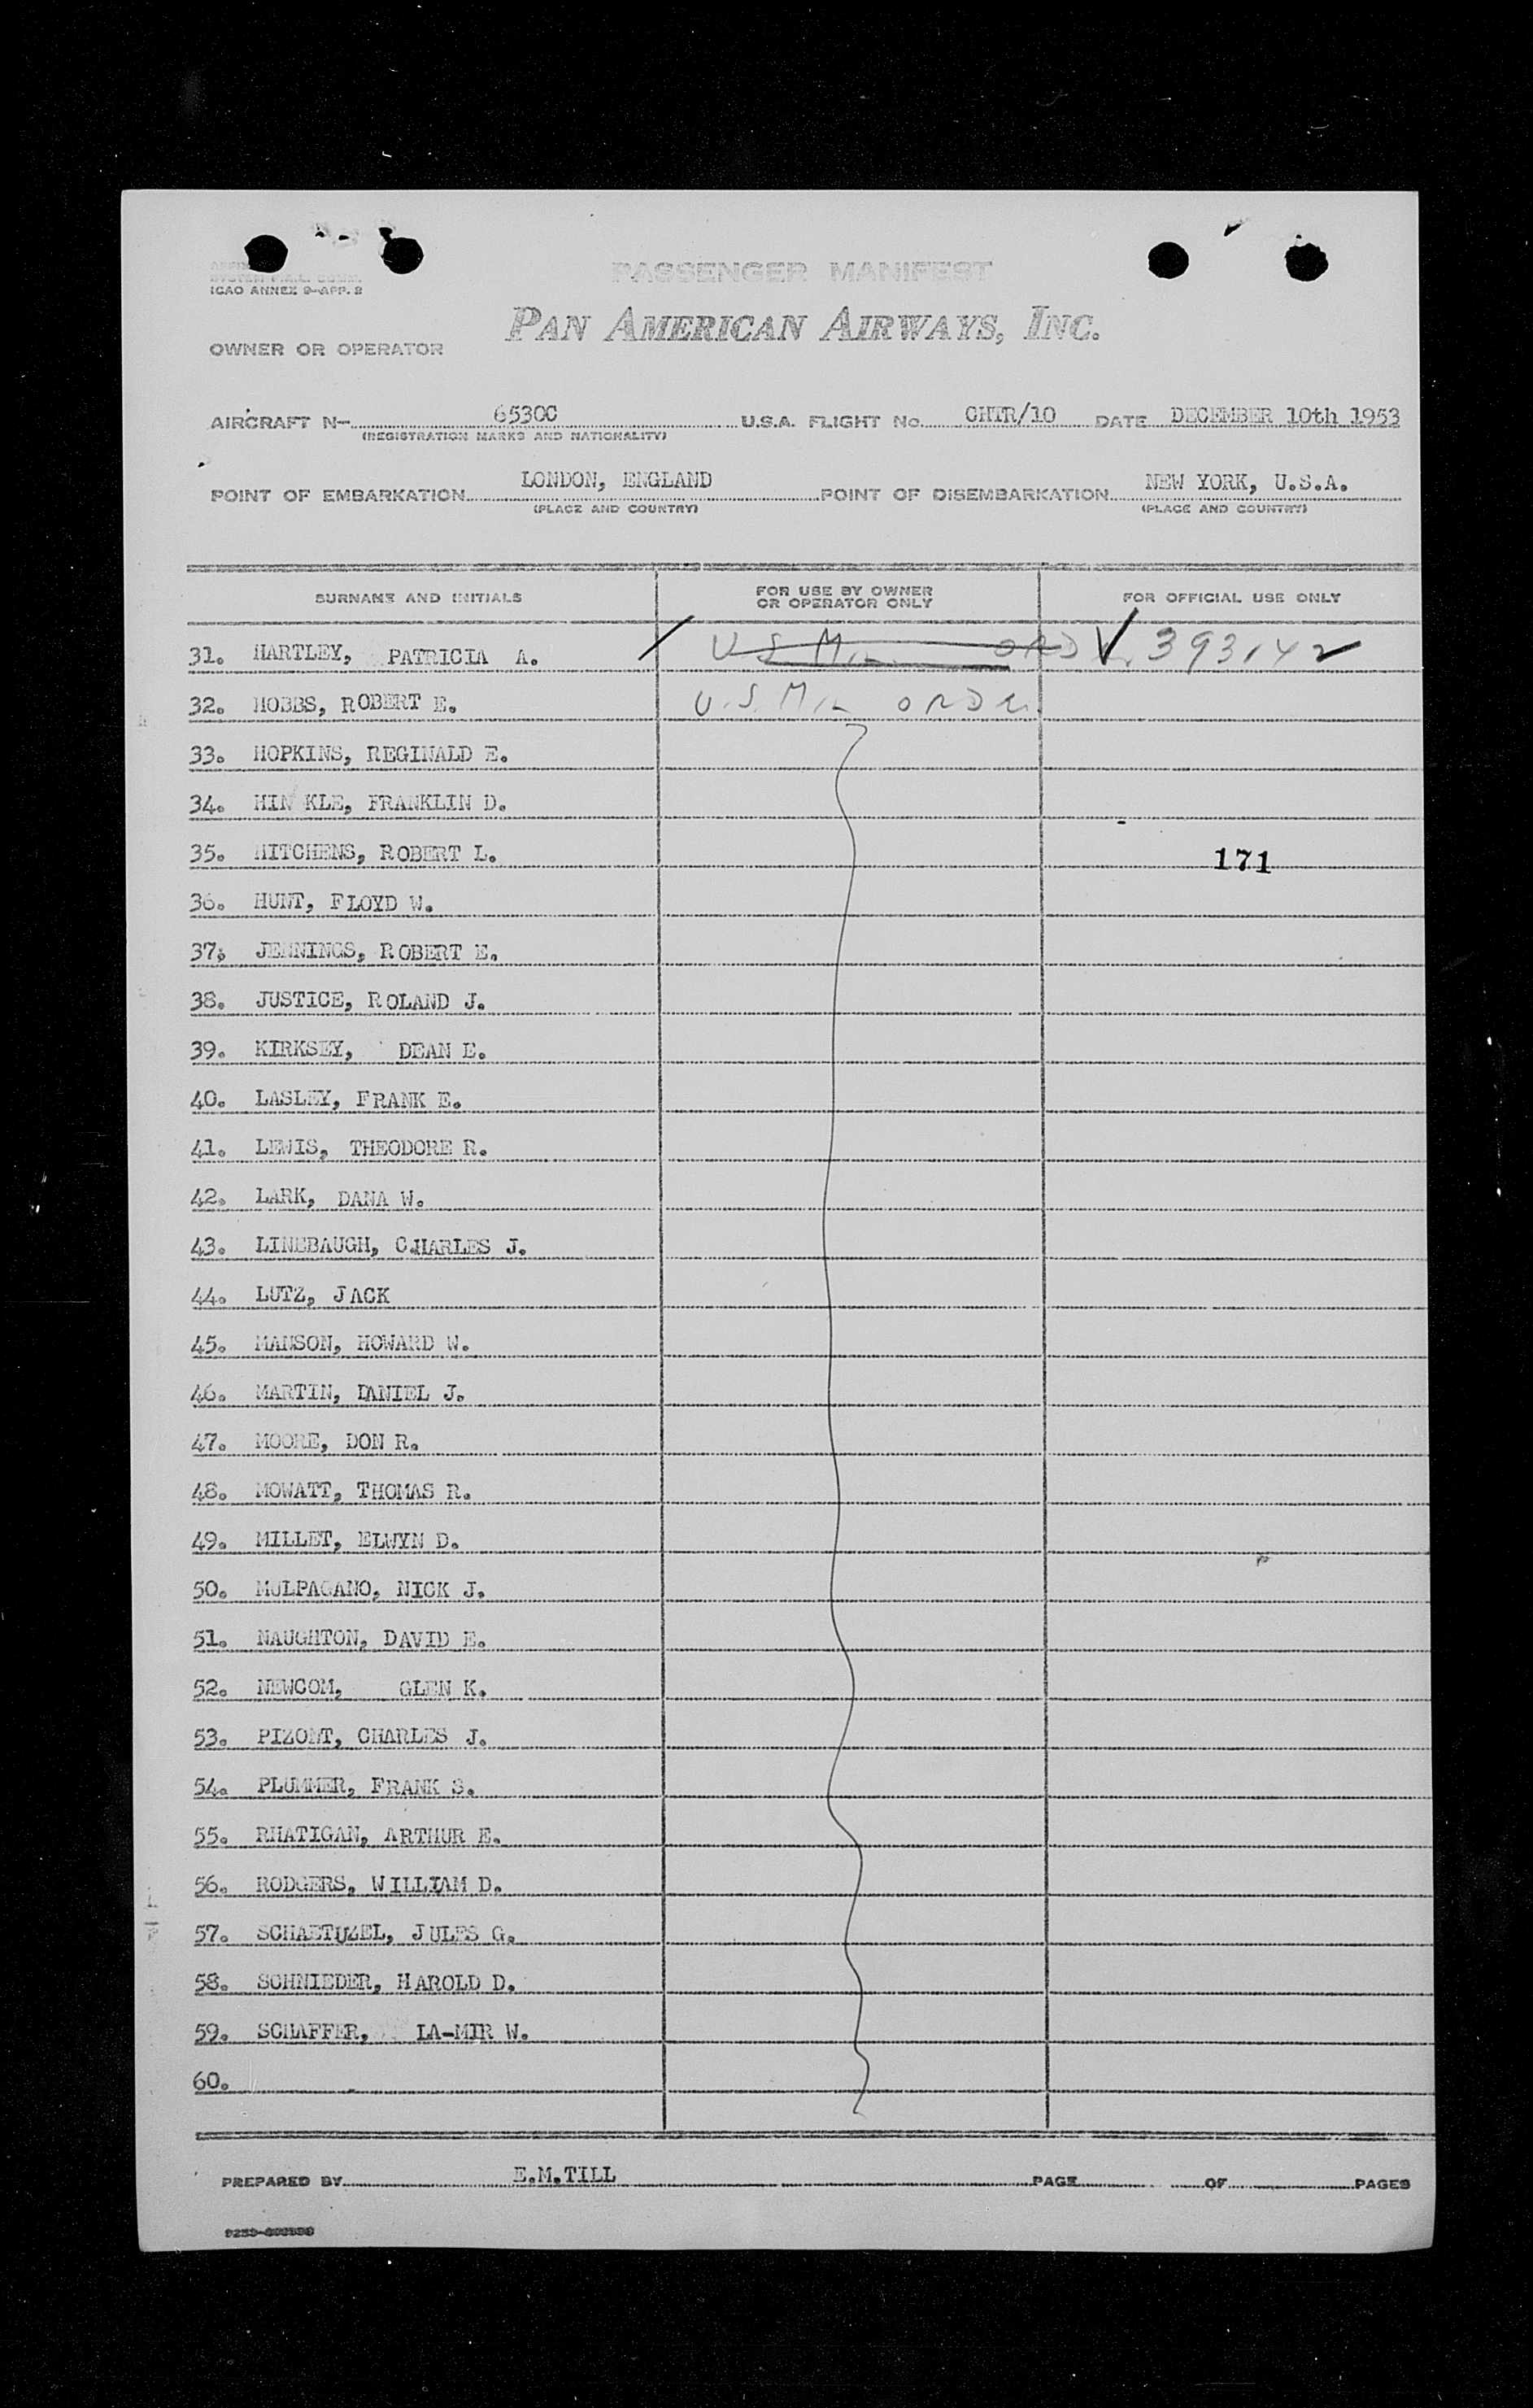 PASSENGER MANIFEST
ICAO ANNEX 9-APP. 2
PAN AMERICAN AIRWAYS, INC.
OWNER OR OPERATOR
AIRCRAFT N- 6530C U.S.A. FLIGHT No. CHTR/10 DATE DECEMBER 10th 1953
(REGISTRATION MARKS AND NATIONALITY)
POINT OF EMBARKATION LONDON, ENGLAND POINT OF DISEMBARKATION NEW YORK, U.S.A.
(PLACE AND COUNTRY) (PLACE AND COUNTRY)
SURNAME AND INITIALS FOR USE BY OWNER OR OPERATOR ONLY FOR OFFICIAL USE ONLY
31. HARTLEY, PATRICIA A. U S MIL ORD 393142
32. HOBBS, ROBERT E. U.S. MIL ORDER
33. HOPKINS, REGINALD E.
34. HIN KLE, FRANKLIN D.
35. HITCHENS, ROBERT L. 171
36. HUNT, FLOYD W.
37. JENNINGS, ROBERT E.
38. JUSTICE, ROLAND J.
39. KIRKSEY, DEAN E.
40. LASLEY, FRANK E.
41. LEWIS, THEODORE R.
42. LARK, DANA W.
43. LINEBAUGH, CHARLES J.
44. LUTZ, JACK
45. MANSON, HOWARD W.
46. MARTIN, DANIEL J.
47. MOORE, DON R.
48. MOWATT, THOMAS R.
49. MILLET, ELWYN D.
50. MULPAGANO, NICK J.
51. NAUGHTON, DAVID E.
52. NEWCOM, GLEN K.
53. PIZONT, CHARLES J.
54. PLUMMER, FRANK S.
55. RHATIGAN, ARTHUR E.
56. RODGERS, WILLIAM D.
57. SCHAETUZEL, JULES G.
58. SCHNIEDER, HAROLD D.
59. SCHAFFER, LA-MIR W.
60.
PREPARED BY E.M.TILL PAGE OF PAGES